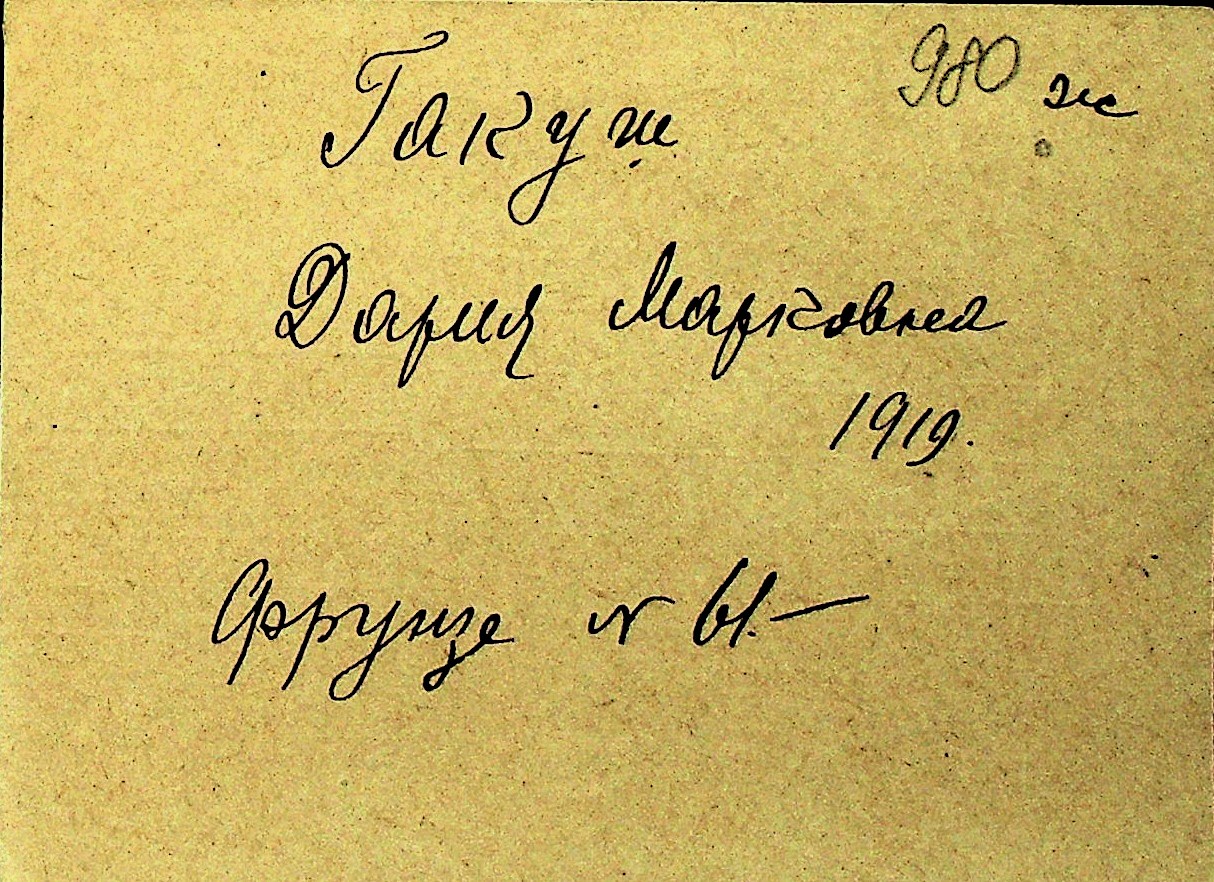 980 ж
Гакуж
Дария Марковна
1919.
Фрунзе № 61.—